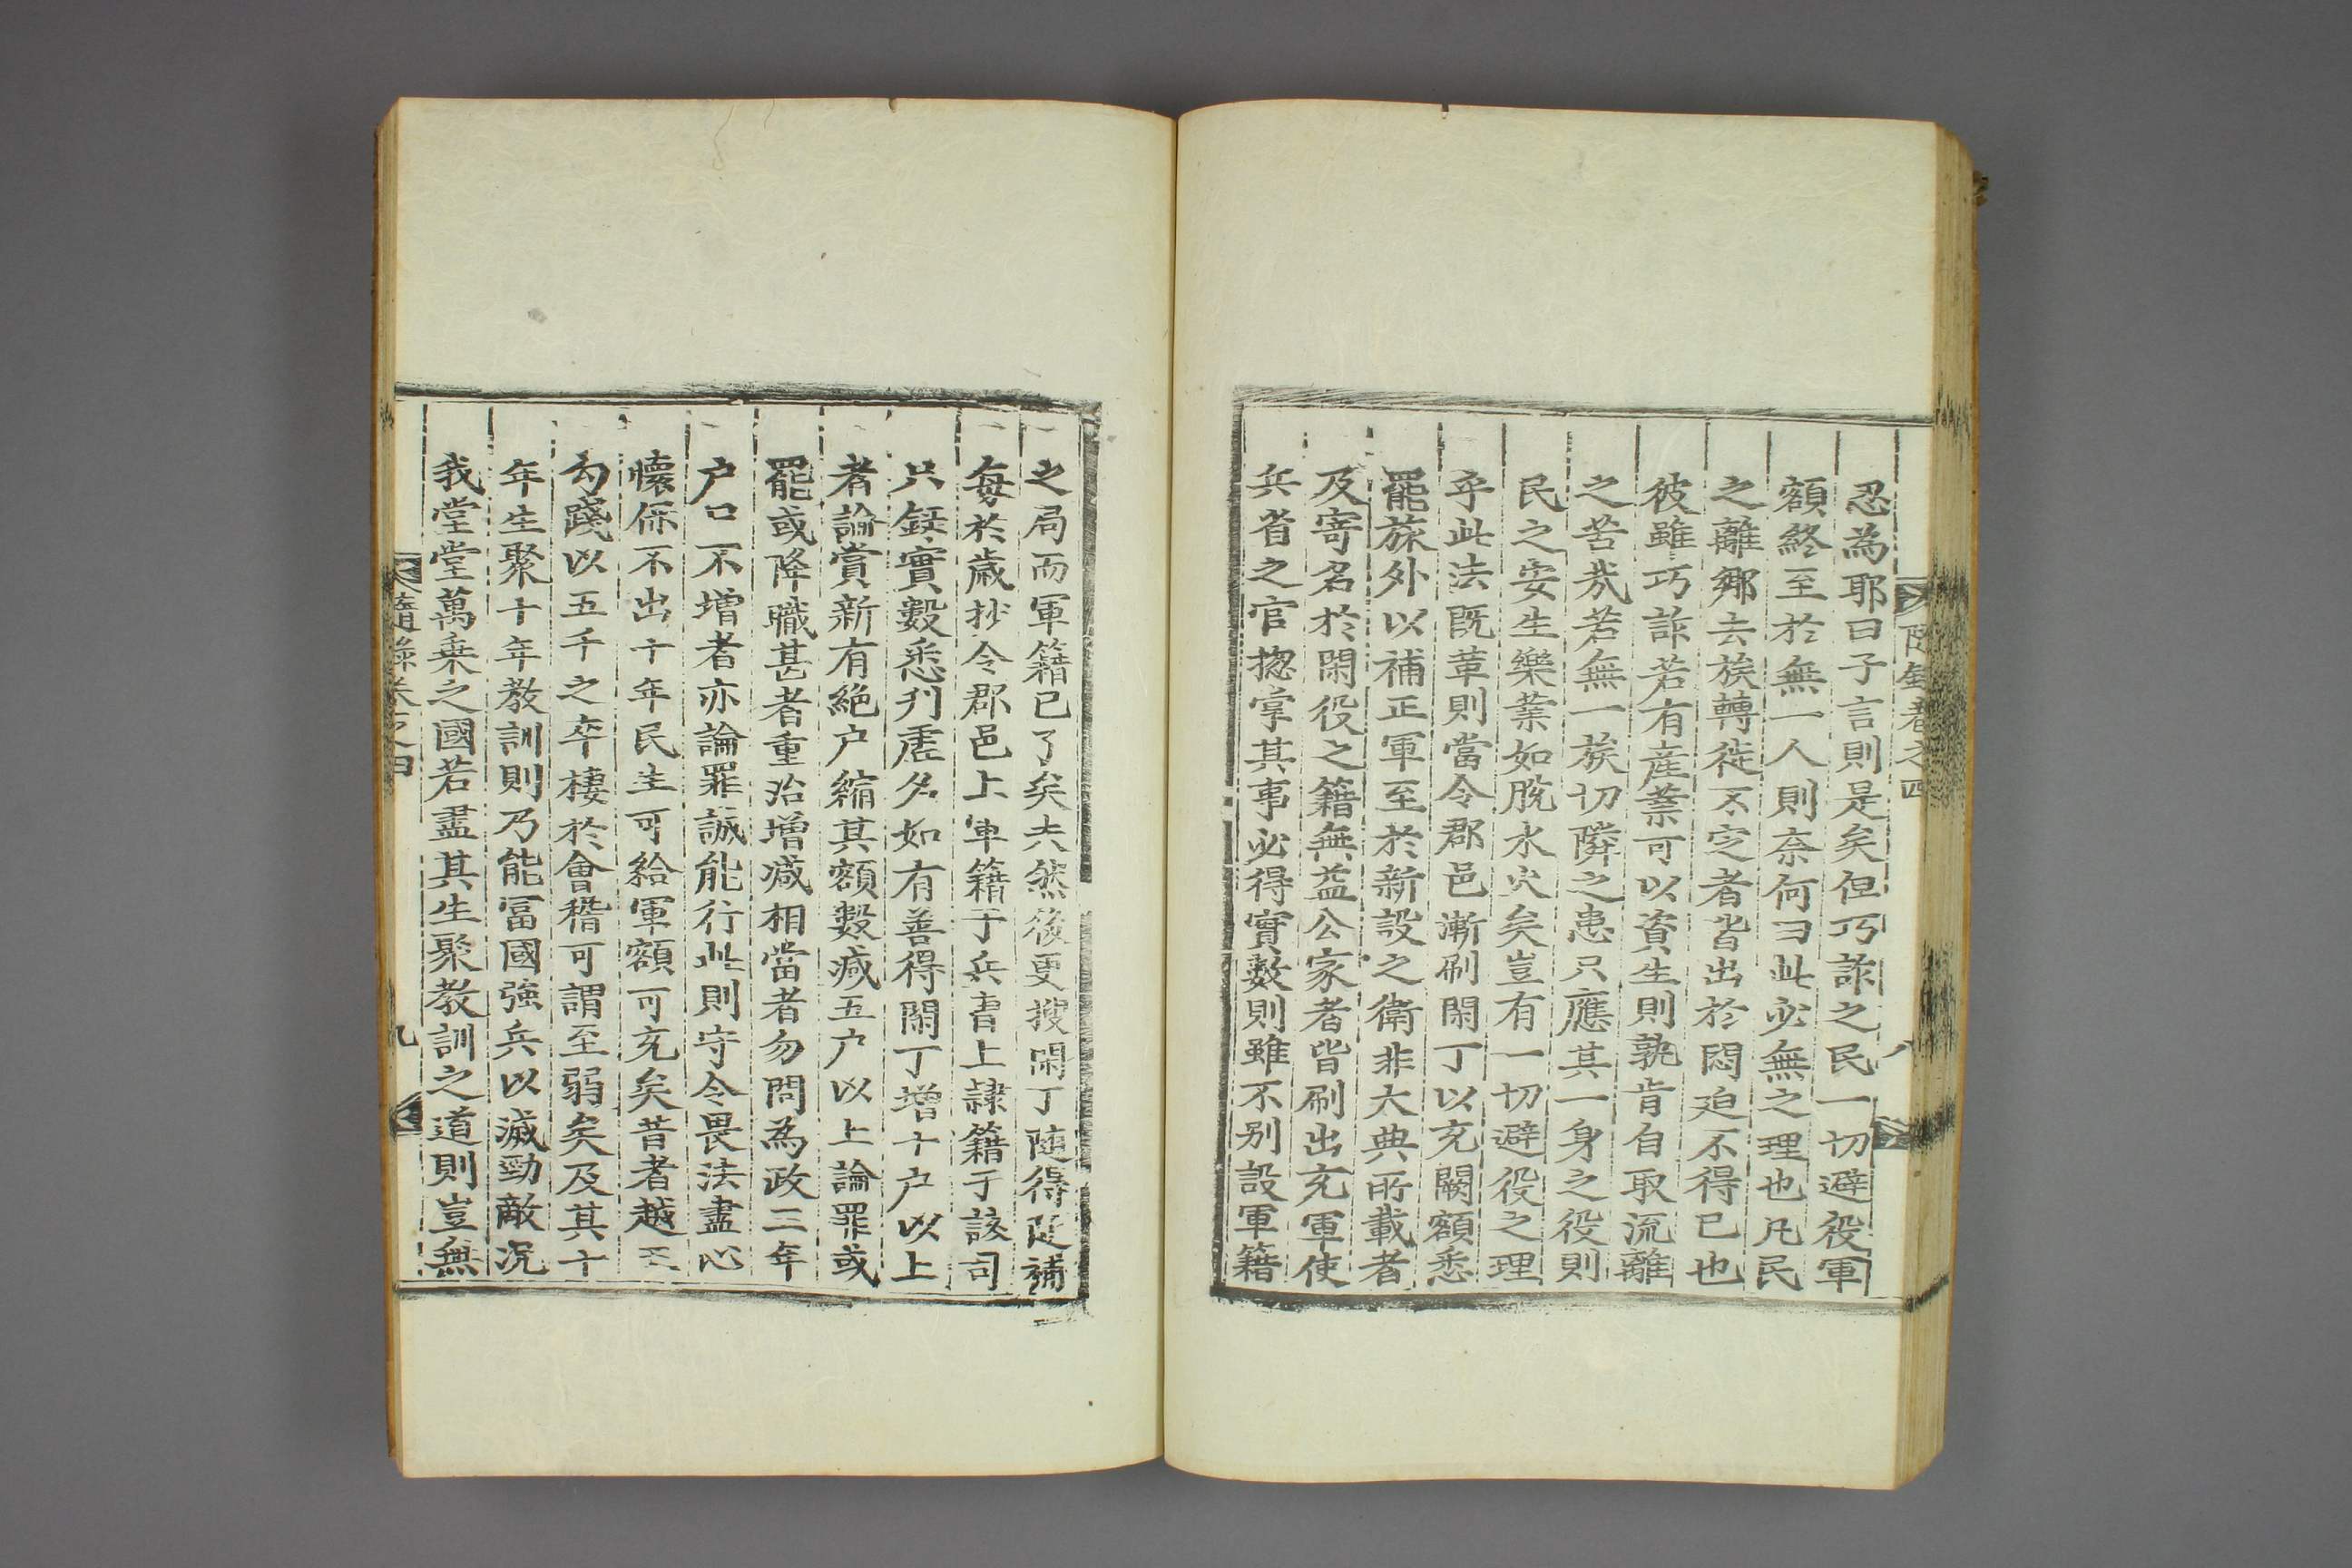 忍為耶曰子言則是矣但巧詐之民一切避役軍
額終至於無一人則奈何曰此必無之理也凡民
之離鄉去族轉徙不定者皆出於悶迫不得已也
彼雖巧詐若有産業可以資生則孰肯自取流離
之苦哉若無一族切隣之患只應其一身之役則
民之安生樂業如脫水火矣豈有一切避役之理
乎此法既革則當令郡邑漸刷閑丁以充闕額悉
罷旅外以補正軍至於新設之衛非大典所載者
及寄名於閑役之籍無益公家者皆刷出充軍使
兵省之官捴掌其事必得實數則雖不别設軍籍
隨錄卷之四
八
之局而軍籍已了矣夫然後更搜閑丁隨得隨補
每於歲抄令郡邑上軍籍于兵曹上隷籍于該司
只錄實數悉刋虛名如有善得閑丁增十户以上
者論賞新有絕户縮其額數减五户以上論罪或
罷或降職甚者重治增减相當者勿問為政三年
户口不增者亦論罪誠能行此則守令畏法盡心
懷保不出十年民生可給軍額可充矣昔者越王
勾踐以五千之卒棲於會稽可謂至弱矣及其十
年生聚十年教訓則乃能冨國強兵以滅勁敵况
我堂堂萬乗之國若盡其生聚教訓之道則豈無
隨錄卷之四
九